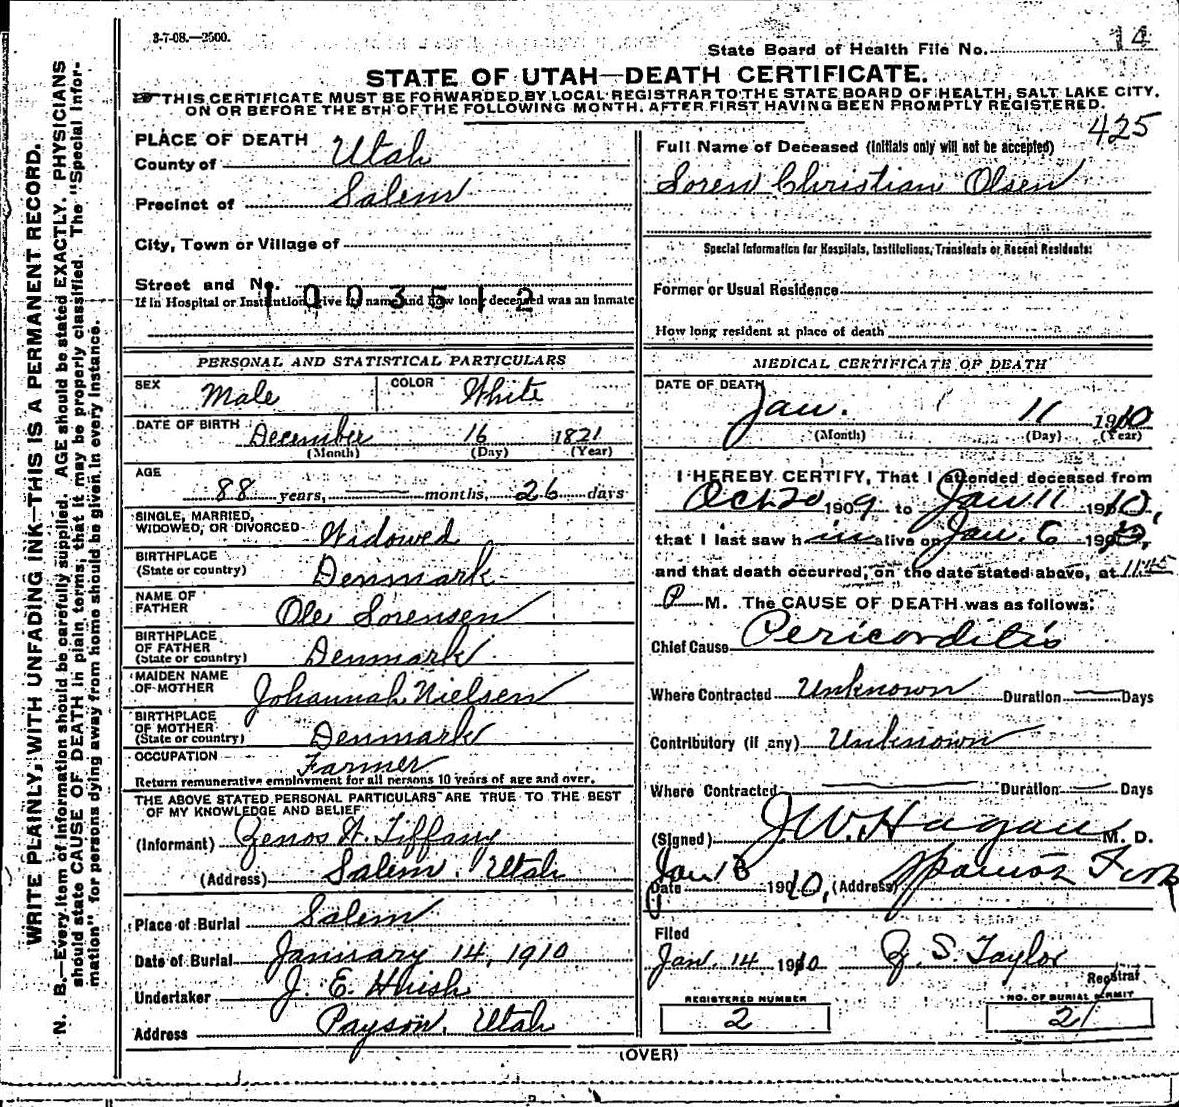 3-7-08.—2500.
State Board of Health File No. 14
STATE OF UTAH—DEATH CERTIFICATE.
THIS CERTIFICATE MUST BE FORWARDED BY LOCAL REGISTRAR TO THE STATE BOARD OF HEALTH, SALT LAKE CITY,
ON OR BEFORE THE 5TH OF THE FOLLOWING MONTH, AFTER FIRST HAVING BEEN PROMPTLY REGISTERED.
425
WRITE PLAINLY, WITH UNFADING INK—THIS IS A PERMANENT RECORD.
N. B.—Every item of information should be carefully supplied. AGE should be stated EXACTLY. PHYSICIANS
should state CAUSE OF DEATH in plain terms, that it may be properly classified. The "Special Infor-
mation" for persons dying away from home should be given in every instance.
PLACE OF DEATH
County of Utah
Precinct of Salem
City, Town or Village of
Street and No.
1003512
If in Hospital or Institution give its name and how long deceased was an inmate
PERSONAL AND STATISTICAL PARTICULARS
SEX Male COLOR White
DATE OF BIRTH December 16 1821
(Month) (Day) (Year)
AGE
88 years, — months, 26 days
SINGLE, MARRIED,
WIDOWED, OR DIVORCED Widowed
BIRTHPLACE
(State or country) Denmark
NAME OF
FATHER Ole Sorensen
BIRTHPLACE
OF FATHER
(State or country) Denmark
MAIDEN NAME
OF MOTHER Johannah Nielsen
BIRTHPLACE
OF MOTHER
(State or country) Denmark
OCCUPATION Farmer
Return remunerative employment for all persons 10 years of age and over.
THE ABOVE STATED PERSONAL PARTICULARS ARE TRUE TO THE BEST
OF MY KNOWLEDGE AND BELIEF
(Informant) Zenos H. Tiffany
(Address) Salem, Utah
Place of Burial Salem
Date of Burial January 14, 1910
Undertaker J. E. Huish
Address Payson, Utah
Full Name of Deceased (Initials only will not be accepted)
Soren Christian Olsen
Special Information for Hospitals, Institutions, Transients or Recent Residents:
Former or Usual Residence
How long resident at place of death
MEDICAL CERTIFICATE OF DEATH
DATE OF DEATH
Jan. 11 1910
(Month) (Day) (Year)
I HEREBY CERTIFY, That I attended deceased from
Oct 20 1909 to Jan 11 1910,
that I last saw him alive on Jan. 6 1910,
and that death occurred, on the date stated above, at 11:45
P M. The CAUSE OF DEATH was as follows:
Chief Cause Pericorditis
Where Contracted Unknown Duration — Days
Contributory (if any) Unknown
Where Contracted — Duration — Days
(Signed) J.W. Hagan M. D.
Jan 13
Date 1910, (Address) Spanish Fork
Filed
Jan. 14 1910 Z. S. Taylor
Registrar
REGISTERED NUMBER NO. OF BURIAL PERMIT
2 21
(OVER)